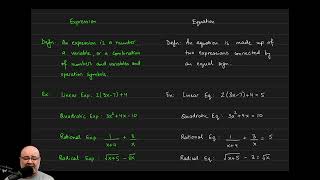 Expression Equation
Defn: An expression is a number, Defn: An equation is made up of
a variable, or a combination two expressions connected by
of numbers and variables and an equal sign.
operation symbols.
Ex: Linear Exp: 2(3x-7)+4 Ex: Linear Eq: 2(3x-7)+4=5
Quadratic Exp: 3x²+4x-10 Quadratic Eq: 3x²+4x=10
Rational Exp: 1/(x+2) + 3/x Rational Eq: 1/(x+4) + 3/x = 5
Radical Exp: √(x+5) - 2x Radical Eq: √(x+5) - 2 = √x